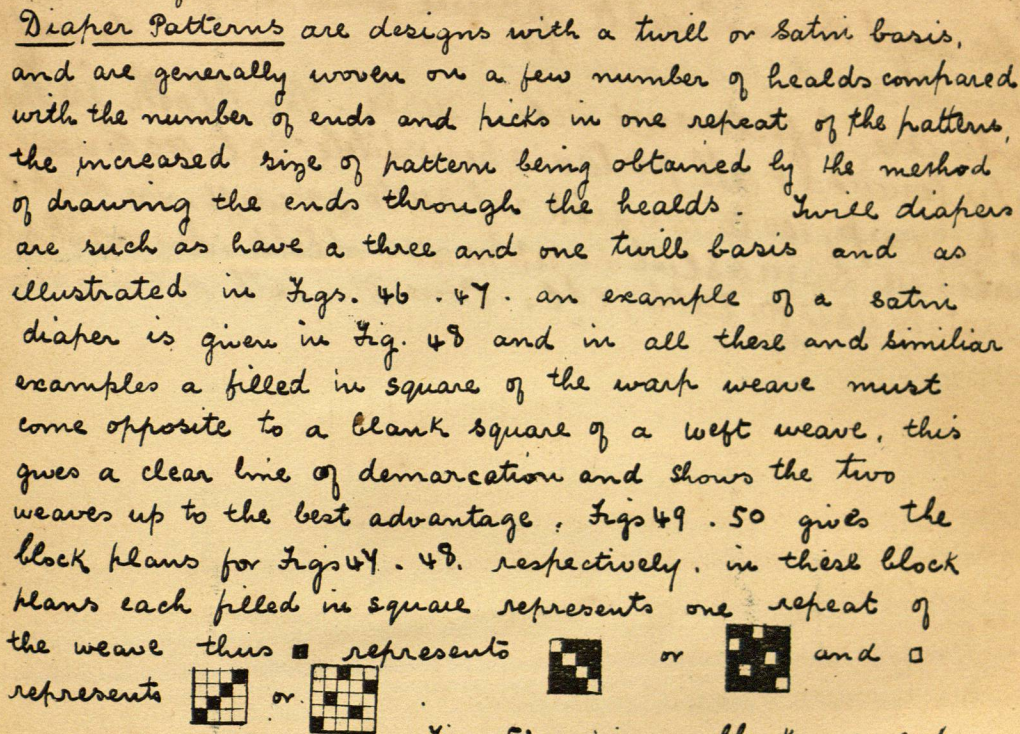 Diaper Patterns are designs with a twill or Satin basis,
and are generally woven on a few number of healds compared
with the number of ends and picks in one repeat of the pattern,
the increased size of pattern being obtained by the method
of drawing the ends through the healds. Twill diapers
are such as have a three and one twill basis and as
illustrated in Figs. 46 . 47 . an example of a Satin
diaper is given in Fig. 48 and in all these and similiar
examples a filled in square of the warp weave must
come opposite to a blank square of a weft weave, this
gives a clear line of demarcation and shows the two
weaves up to the best advantage. Figs 49 . 50 gives the
block plans for Figs 47 . 48. respectively. in these block
plans each filled in square represents one repeat of
the weave thus represents or and
represents or